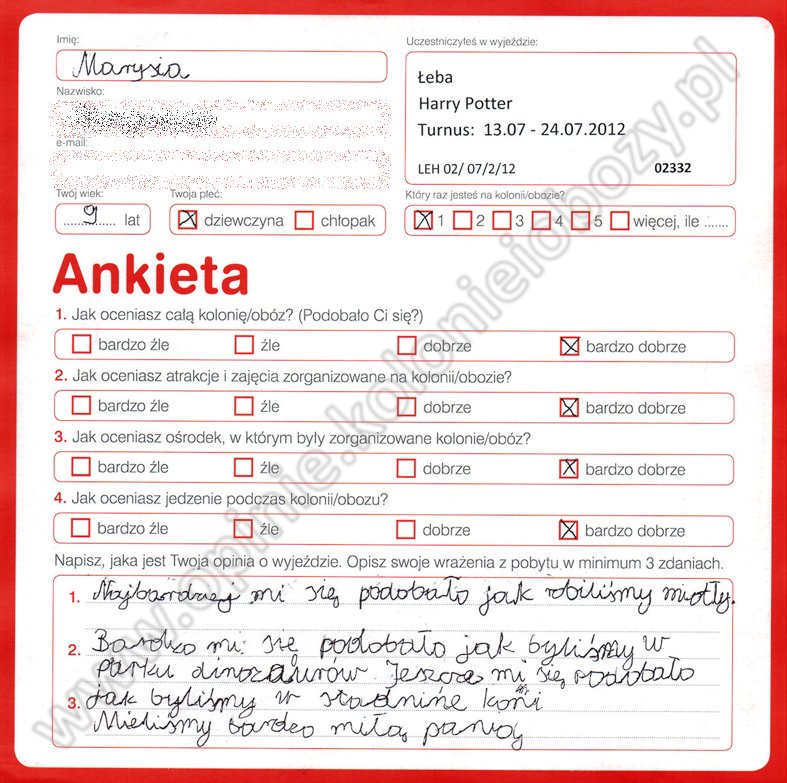 Imię:
Marysia
Nazwisko:
e-mail:
Twój wiek:
9 lat
Twoja płeć:
dziewczyna
chłopak
Uczestniczyłeś w wyjeździe:
Łeba
Harry Potter
Turnus: 13.07 - 24.07.2012
LEH 02/ 07/2/12
02332
Który raz jesteś na kolonii/obozie?
1 2 3 4 5 więcej, ile .......
Ankieta
1. Jak oceniasz całą kolonię/obóz? (Podobało Ci się?)
bardzo źle źle dobrze bardzo dobrze
2. Jak oceniasz atrakcje i zajęcia zorganizowane na kolonii/obozie?
bardzo źle źle dobrze bardzo dobrze
3. Jak oceniasz ośrodek, w którym były zorganizowane kolonie/obóz?
bardzo źle źle dobrze bardzo dobrze
4. Jak oceniasz jedzenie podczas kolonii/obozu?
bardzo źle źle dobrze bardzo dobrze
Napisz, jaka jest Twoja opinia o wyjeździe. Opisz swoje wrażenia z pobytu w minimum 3 zdaniach.
1. Najbardziej mi się podobało jak robiliśmy miotły.
2. Bardzo mi się podobało jak byliśmy w
parku dinozaurów Jeszcze mi się podobało
3. Jak byliśmy w stadninie koni
Mieliśmy bardzo miłą panią
www.opinie.kolonieiobozy.pl